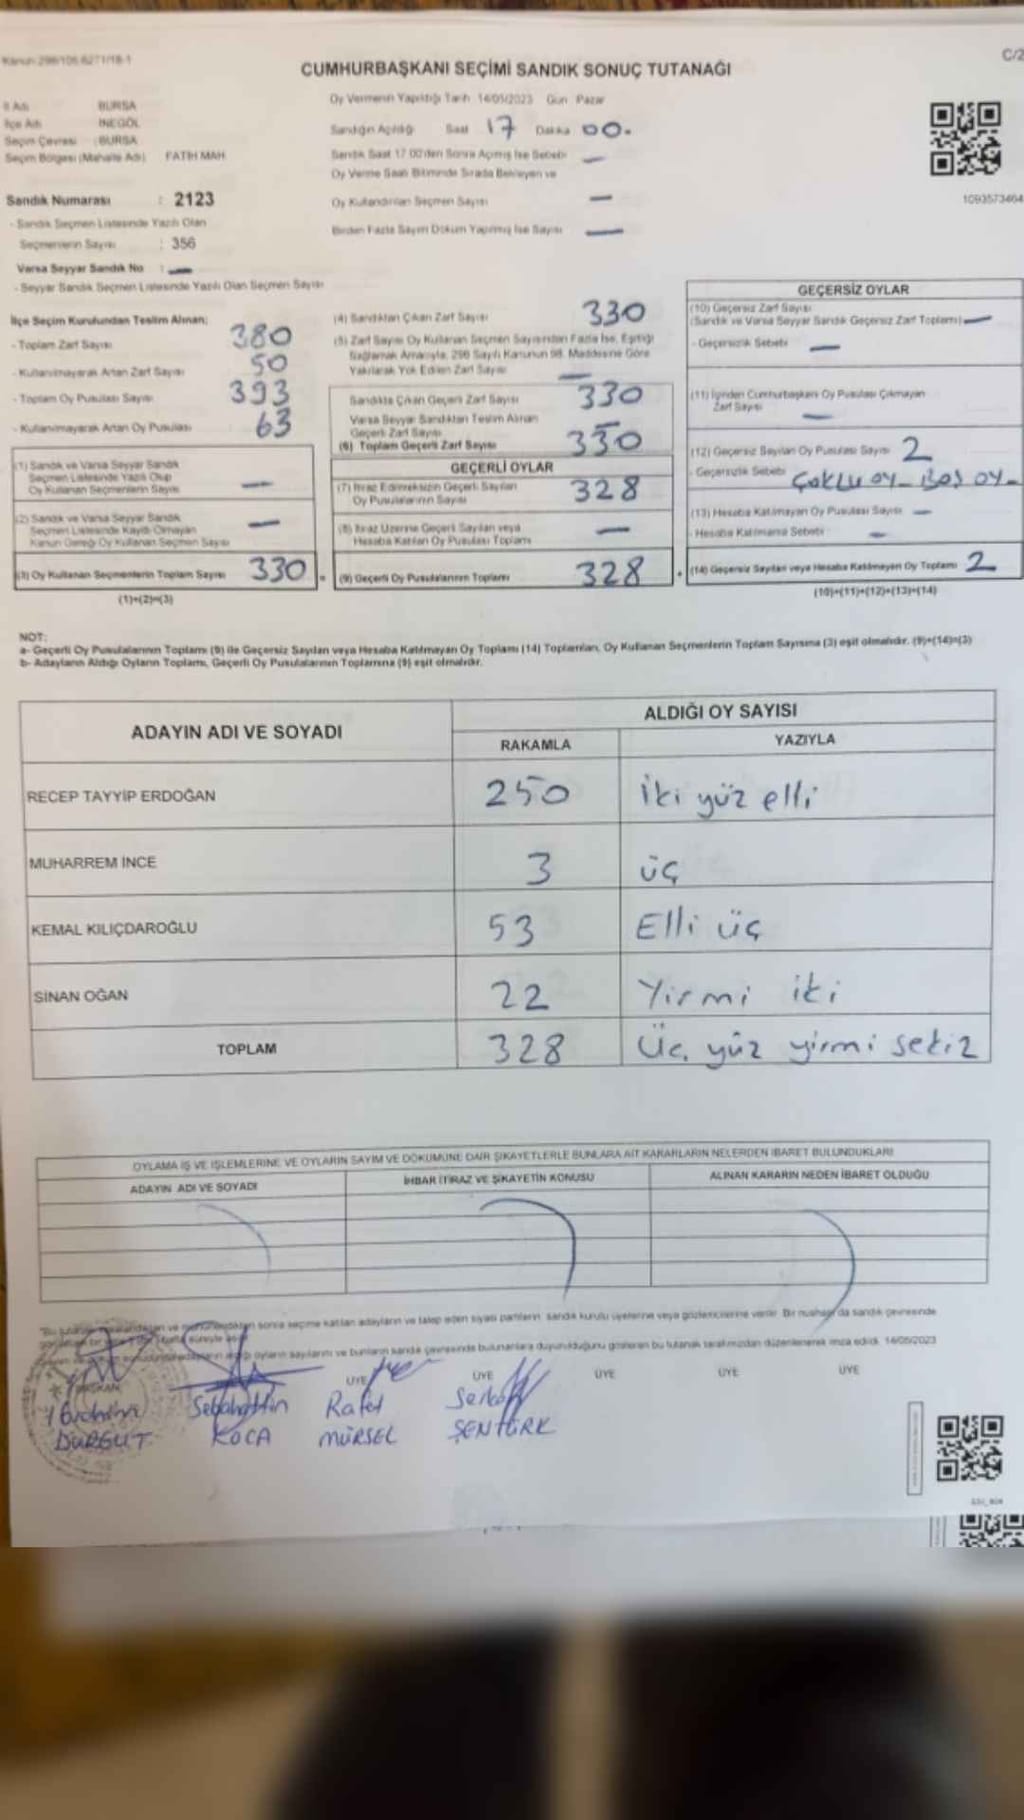 Kanun 298/105 6271/18-1
C/2
CUMHURBAŞKANI SEÇİMİ SANDIK SONUÇ TUTANAĞI
İl Adı BURSA
İlçe Adı İNEGÖL
Seçim Çevresi : BURSA
Seçim Bölgesi (Mahalle Adı) FATİH MAH
Sandık Numarası : 2123
- Sandık Seçmen Listesinde Yazılı Olan
Seçmenlerin Sayısı : 356
Varsa Seyyar Sandık No : —
- Seyyar Sandık Seçmen Listesinde Yazılı Olan Seçmen Sayısı
Oy Vermenin Yapıldığı Tarih 14/05/2023 Gün Pazar
Sandığın Açıldığı Saat 17 Dakika 00.
Sandık Saat 17.00'den Sonra Açılmış İse Sebebi —
Oy Verme Saati Bitiminde Sırada Bekleyen ve
Oy Kullandırılan Seçmen Sayısı —
Birden Fazla Sayım Döküm Yapılmış İse Sayısı —
1093573464
İlçe Seçim Kurulundan Teslim Alınan;
- Toplam Zarf Sayısı 380
- Kullanılmayarak Artan Zarf Sayısı 50
- Toplam Oy Pusulası Sayısı 393
- Kullanılmayarak Artan Oy Pusulası 63
(1) Sandık ve Varsa Seyyar Sandık
Seçmen Listesinde Yazılı Olup
Oy Kullanan Seçmenlerin Sayısı —
(2) Sandık ve Varsa Seyyar Sandık
Seçmen Listesinde Kayıtlı Olmayan
Kanun Gereği Oy Kullanan Seçmen Sayısı —
(3) Oy Kullanan Seçmenlerin Toplam Sayısı 330
(1)+(2)=(3)
(4) Sandıktan Çıkan Zarf Sayısı 330
(5) Zarf Sayısı Oy Kullanan Seçmen Sayısından Fazla İse, Eşitliği
Sağlamak Amacıyla, 298 Sayılı Kanunun 98. Maddesine Göre
Yakılarak Yok Edilen Zarf Sayısı —
Sandıkta Çıkan Geçerli Zarf Sayısı 330
Varsa Seyyar Sandıktan Teslim Alınan
Geçerli Zarf Sayısı
(6) Toplam Geçerli Zarf Sayısı 330
GEÇERLİ OYLAR
(7) İtiraz Edilmeksizin Geçerli Sayılan
Oy Pusulalarının Sayısı 328
(8) İtiraz Üzerine Geçerli Sayılan veya
Hesaba Katılan Oy Pusulası Toplamı —
(9) Geçerli Oy Pusulalarının Toplamı 328
GEÇERSİZ OYLAR
(10) Geçersiz Zarf Sayısı
(Sandık ve Varsa Seyyar Sandık Geçersiz Zarf Toplamı) —
- Geçersizlik Sebebi —
(11) İçinden Cumhurbaşkanı Oy Pusulası Çıkmayan
Zarf Sayısı —
(12) Geçersiz Sayılan Oy Pusulası Sayısı 2
- Geçersizlik Sebebi ÇOKLU OY - BOŞ OY -
(13) Hesaba Katılmayan Oy Pusulası Sayısı —
- Hesaba Katılmama Sebebi —
(14) Geçersiz Sayılan veya Hesaba Katılmayan Oy Toplamı 2
(10)+(11)+(12)+(13)=(14)
NOT:
a- Geçerli Oy Pusulalarının Toplamı (9) ile Geçersiz Sayılan veya Hesaba Katılmayan Oy Toplamı (14) Toplamları, Oy Kullanan Seçmenlerin Toplam Sayısına (3) eşit olmalıdır. (9)+(14)=(3)
b- Adayların Aldığı Oyların Toplamı, Geçerli Oy Pusulalarının Toplamına (9) eşit olmalıdır.
ADAYIN ADI VE SOYADI
ALDIĞI OY SAYISI
RAKAMLA YAZIYLA
RECEP TAYYİP ERDOĞAN 250 İki yüz elli
MUHARREM İNCE 3 üç
KEMAL KILIÇDAROĞLU 53 Elli üç
SİNAN OĞAN 22 Yirmi iki
TOPLAM 328 Üç yüz yirmi sekiz
OYLAMA İŞ VE İŞLEMLERİNE VE OYLARIN SAYIM VE DÖKÜMÜNE DAİR ŞİKAYETLERLE BUNLARA AİT KARARLARIN NELERDEN İBARET BULUNDUKLARI
ADAYIN ADI VE SOYADI
İHBAR İTİRAZ VE ŞİKAYETİN KONUSU
ALINAN KARARIN NEDEN İBARET OLDUĞU
sonra seçime katılan adayların ve talep eden siyasi partilerin sandık kurulu üyelerine veya gözlemcilerine verilir. Bir nushası da sandık çevresinde
aldığı oyların sayılarını ve bunların sandık çevresinde bulunanlara duyurulduğunu gösteren bu tutanak tarafımızdan düzenlenerek imza edildi. 14/05/2023
BAŞKAN
ÜYE ÜYE ÜYE ÜYE ÜYE
İbrahim Sebahattin Rafet Serkan
DURGUT KOCA MÜRSEL ŞENTÜRK